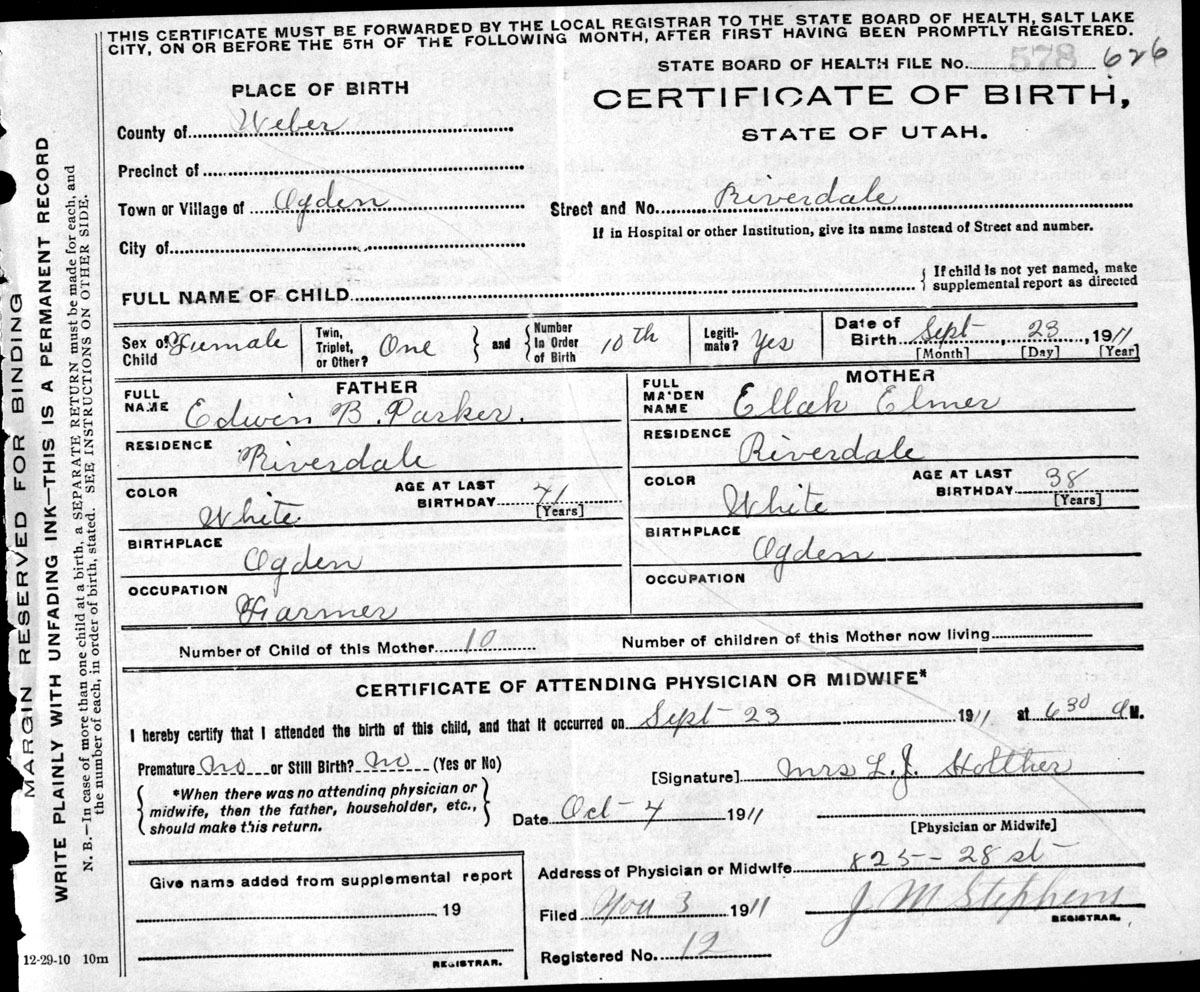 THIS CERTIFICATE MUST BE FORWARDED BY THE LOCAL REGISTRAR TO THE STATE BOARD OF HEALTH, SALT LAKE
CITY, ON OR BEFORE THE 5TH OF THE FOLLOWING MONTH, AFTER FIRST HAVING BEEN PROMPTLY REGISTERED.
STATE BOARD OF HEALTH FILE No. 578 626
PLACE OF BIRTH
CERTIFICATE OF BIRTH,
STATE OF UTAH.
County of Weber
Precinct of
Town or Village of Ogden
Street and No. Riverdale
If in Hospital or other Institution, give its name instead of Street and number.
City of
FULL NAME OF CHILD
{ If child is not yet named, make
supplemental report as directed
Sex of Child Female
Twin, Triplet, or Other? One
and
Number In Order of Birth 10th
Legiti-mate? Yes
Date of Birth Sept 23, 1911
[Month] [Day] [Year]
FATHER
FULL NAME Edwin B. Parker.
RESIDENCE Riverdale
COLOR White
AGE AT LAST BIRTHDAY 41 [Years]
BIRTHPLACE Ogden
OCCUPATION Farmer
MOTHER
FULL MAIDEN NAME Ellah Elmer
RESIDENCE Riverdale
COLOR White
AGE AT LAST BIRTHDAY 38 [Years]
BIRTHPLACE Ogden
OCCUPATION
Number of Child of this Mother 10
Number of children of this Mother now living
CERTIFICATE OF ATTENDING PHYSICIAN OR MIDWIFE*
I hereby certify that I attended the birth of this child, and that it occurred on Sept 23 1911 at 6 30 M.
Premature No or Still Birth? No (Yes or No)
*When there was no attending physician or
midwife, then the father, householder, etc.,
should make this return.
[Signature] Mrs L. J. Holther
Date Oct 4 1911
[Physician or Midwife]
Give name added from supplemental report
, 19
REGISTRAR.
Address of Physician or Midwife 825 - 28 st
Filed 3 1911
J. M Stephens
REGISTRAR.
Registered No. 12
12-29-10 10m
MARGIN RESERVED FOR BINDING
WRITE PLAINLY WITH UNFADING INK—THIS IS A PERMANENT RECORD
N. B.—In case of more than one child at a birth, a SEPARATE RETURN must be made for each, and
the number of each, in order of birth, stated. SEE INSTRUCTIONS ON OTHER SIDE.